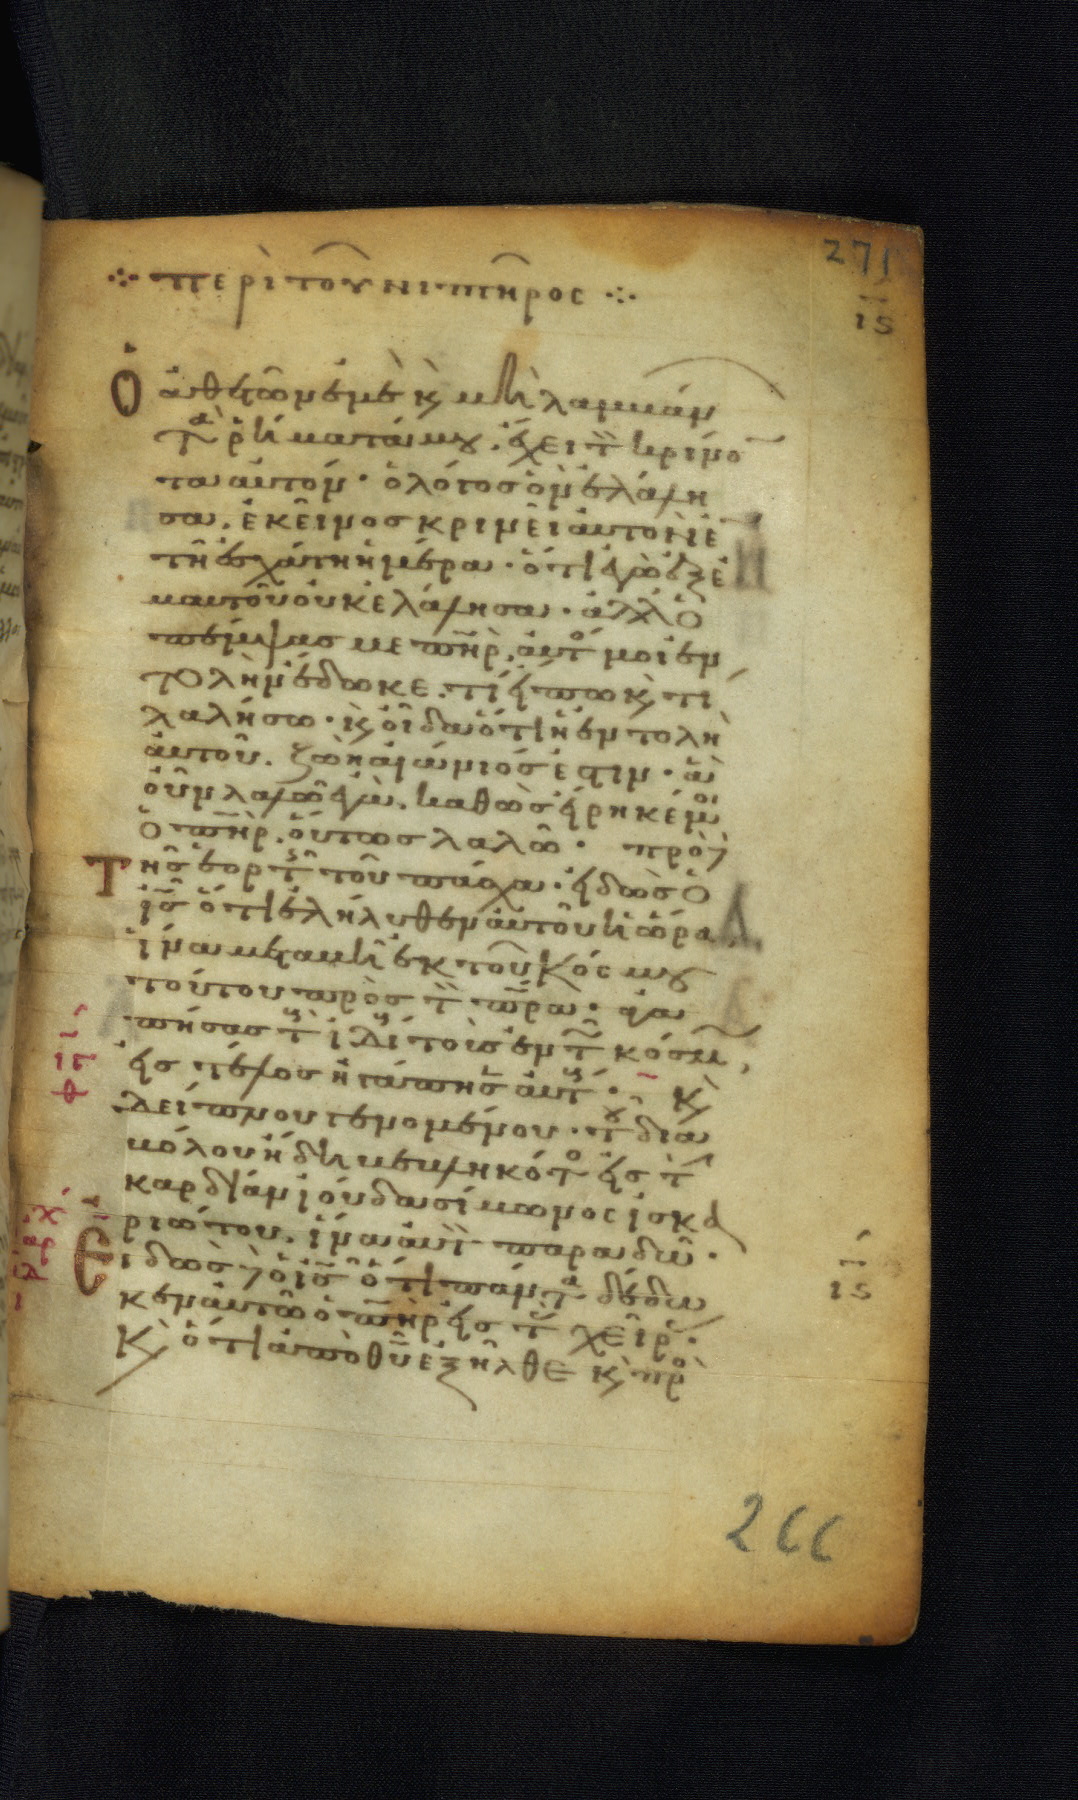 271
ις
περὶ τοῦ νιπτῆρος
Ὁ ἀθετῶν ἐμὲ κ(αὶ) μὴ λαμβάν
τὰ ῥήματά μου. ἔχει τ(ὸν) κρίνο
τα αὐτόν· ὁ λόγος ὃν ἐλάλη
σα. ἐκεῖνος κρινεῖ αὐτὸν ἐ
τῇ ἐσχάτῃ ἡμέρα· ὅτι ἐγὼ ἐξ ἐ
μαυτοῦ οὐκ ἐλάλησα· ἀλλ ὁ
πέμψας με πηρ. αὐτό μοι ἐν
τολὴν ἔδωκε. τί εἴπω κ(αὶ) τί
λαλήσω· κ(αὶ) οἶδα ὅτι ἡ ἐντολὴ
αὐτοῦ. ζωὴ αἰώνιός ἐστιν· ἃ
οὖν λαλῶ ἐγὼ. καθὼς εἴρηκέ μοι
ὁ πηρ. οὕτως λαλῶ· πρὸ
Τῆς ἑορτῆ τοῦ πάσχα· εἰδὼς ὁ
ις ὅτι ἐλήλυθεν αὐτοῦ ἡ ὥρα
ἵνα μεταβῆ ἐκ τοῦ κόσμου
τούτου πρὸς τ(ὸν) πρα· ἀγα
πήσας τ(οὺς) ἰδί(ους) τοὺς ἐν τῶ κόσμ
εἰς τέλος ἠγάπησ αὐτ(ούς)· κ(αὶ)
δείπνου γενομένου· τοῦ δια
βόλου ἤδη βεβληκότο εἰς τ(ὴν)
καρδίαν ἰούδα σίμωνος ἰσκα
ριώτου. ἵνα αὐτ(ὸν) παραδῶ·
Εἰδὼς ὁ ις ὅτι πάντα δέδω
κεν αὐτῶ ὁ πηρ εἰς τ(ὰς) χεῖρ·
Κ(αὶ) ὅτι ἀπὸ θυ ἐξῆλθε κ(αὶ) πρὸ
ις
266